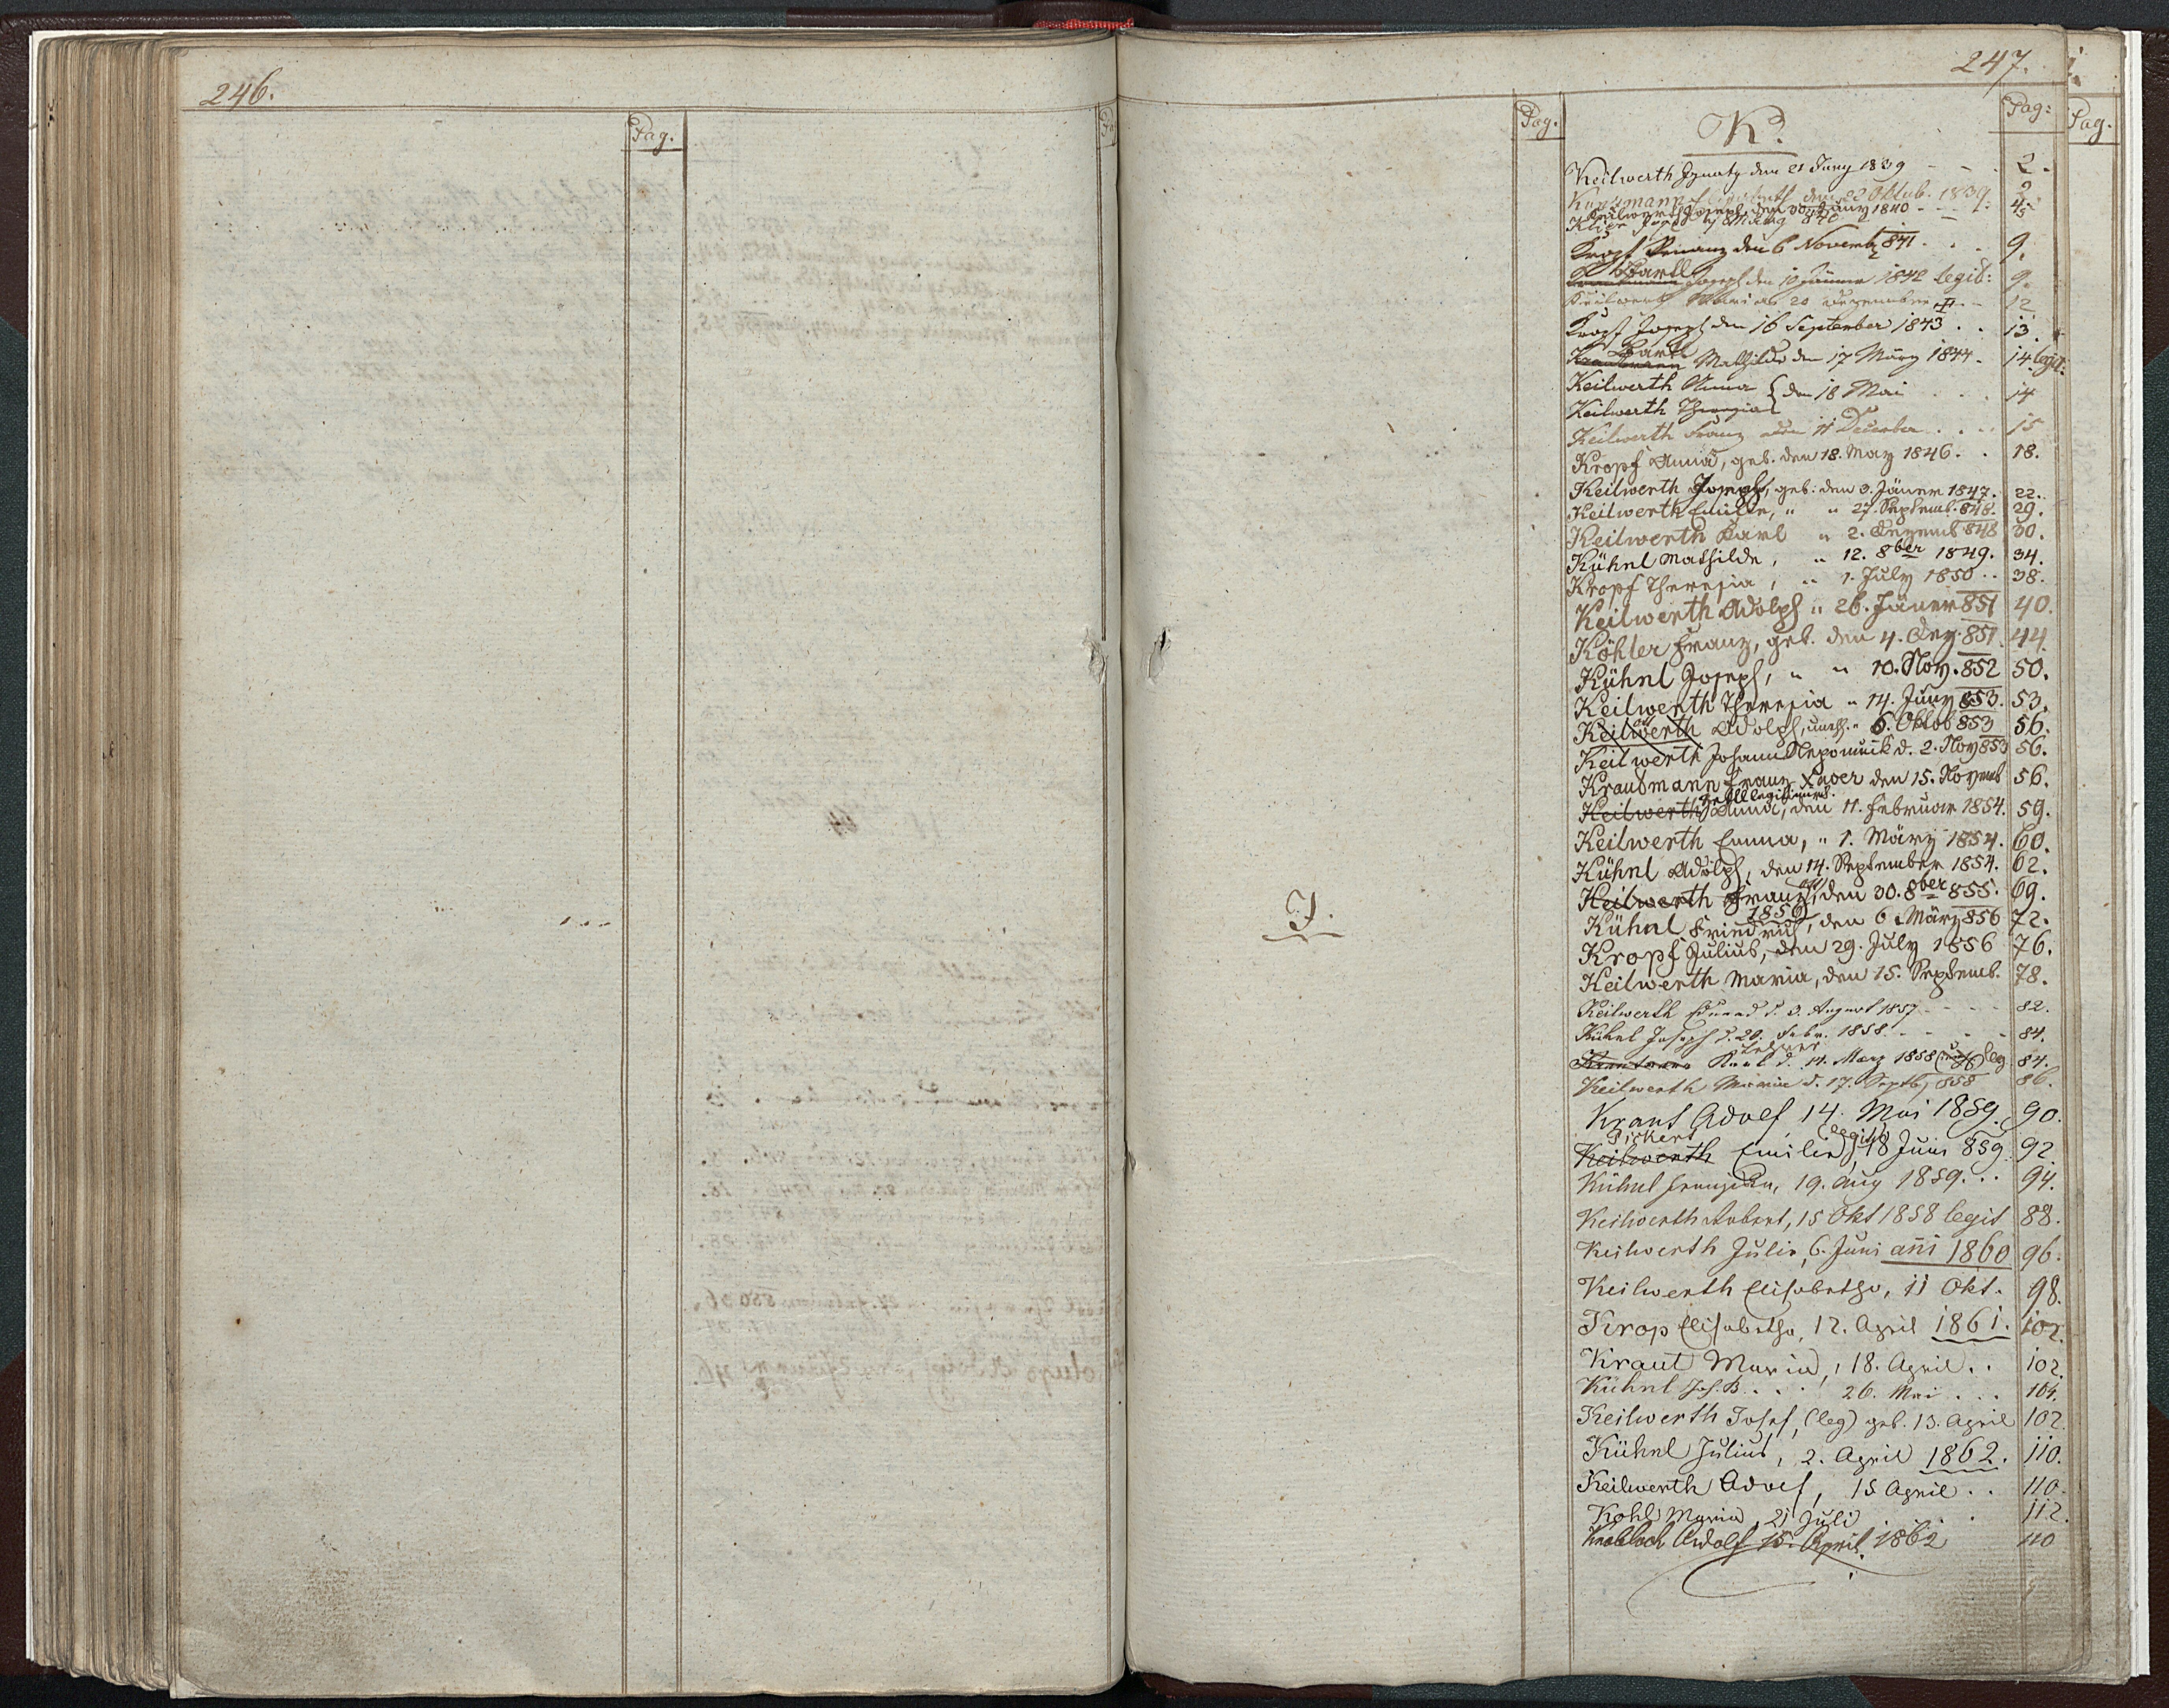 246.
Pag.
247.
Pag.
J.
K.
Pag:
Pag.
Keilwerth Ignatz den 21 Juny 1839 - - 2.
den 22 Oktob. 1839. 2
Keilwerth Joseph den Jany 1840 - - 4.
Klier Joseph 840 5
Kropf den 6 Novemb 841 . . 9.
Bartl
Joseph den Jänner 1842 legit: 9.
Keilwerth Maria 20 Dezember - 12
Kropf Joseph den 16 September 1843 . . 13.
Bartl
Mathilde den 17 März 1844 - 14 legit:
Keilwerth Anna { den 18 Mai . . . 14
Keilwerth Theresia
Keilwerth Franz den 11 December . . . 15
Kropf Anna, geb. den 18. May 1846. . 18.
Keilwerth Joseph, geb: den 3. Jäner 1847. 22.
Keilwerth Emilie, " " 27. Septemb. 848. 29.
Keilwerth Karl " 2. Dezemb 848 30.
Kühnl Mathilde, " 12. 8ber 1849. 34.
Kropf Theresia, " 1. July 1850 . . 38.
Keilwerth Adolph " 26. Jäner 851 40.
Köhler Franz, geb. den 4. Dez. 851. 44.
Kühnl Joseph, " " 10. Nov. 852 50.
Keilwerth Theresia " 14. Juny 853. 53.
Keilwerth Adolph, unehl. " 6. Oktob 853 56.
Keilwerth Johann Nepomuk d. 2. Nov 853 56.
Kraudmann Franz Xaver den 15. Novemb 56.
legitimirt.
Keilwerth Anna, den 11. Februar 1854. 59.
Keilwerth Emma, " 1. März 1854. 60.
Kühnl Adolph, den 14. September 1854. 62.
Keilwerth Franz, den 30. 8ber 855. 69.
1856
Kühnl Friedrich, den 6. März 856 72.
Kropf Julius, den 29. July 1856 76.
Keilwerth Maria, den 15. Septemb. 78.
Keilwerth Eduard d. 3. August 1857 - - - - 82.
Kühnl Joseph d. 20. Febr. 1858. - - - - 84.
Karl d. 11. März 1858 leg 84.
Keilwerth Maria d. 17. Septb. 858 86.
Kraut Adolf 14. Mai 1859. 90.
Pickert legitb
Keilwerth Emilie, 18 Juni 859. 92
Kühnl Franziska, 19. Aug 1859. . . 94.
Keilwerth Robert, 15 Okt 1858 legit 88.
Keilwerth Julie, 6. Juni ani 1860 96.
Keilwerth Elisabetha, 11 Okt. 98.
Krop Elisabetha, 12. April 1861. 102.
Kraut Maria, 18. April . . 102
Kühnl Jos. B. . . . 26. Mai . . . 104.
Keilwerth Josef, (leg) geb. 13. April 102
Kühnl Julius, 2. April 1862. 110.
Keilwerth Adolf, 15 April . . 110.
Kohl Maria, 21 Juli . 112.
Knobloch Adolf 15. April 1862 110